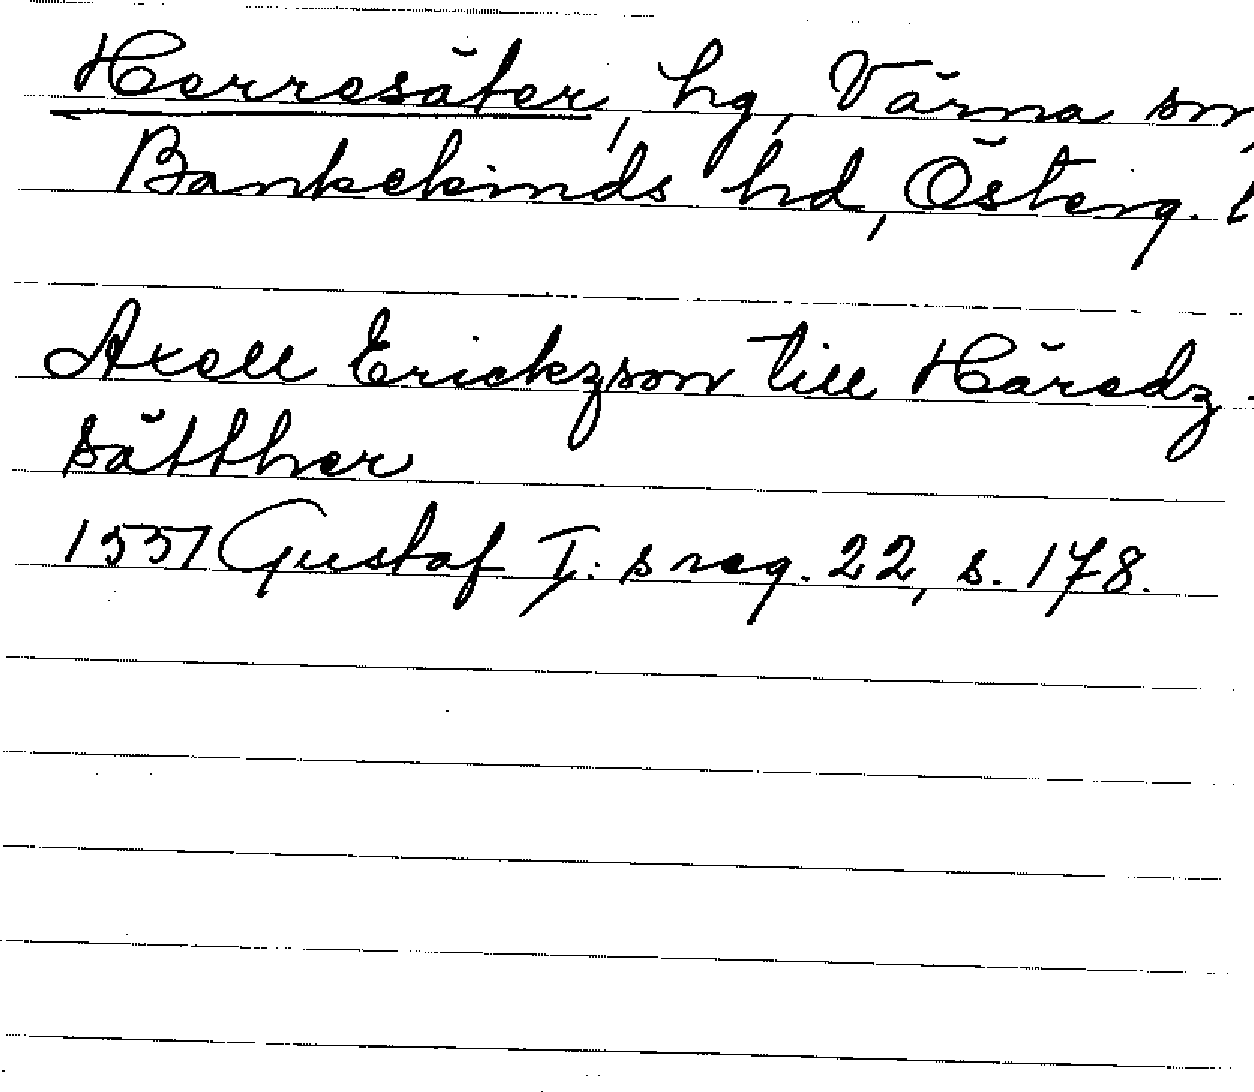 Herresäter, hg, Värna sn,
Bankekinds hd, Österg. l
Axell Erickzson till Häredz-
sätther
1557 Gustaf I:s reg. 22, s. 178.